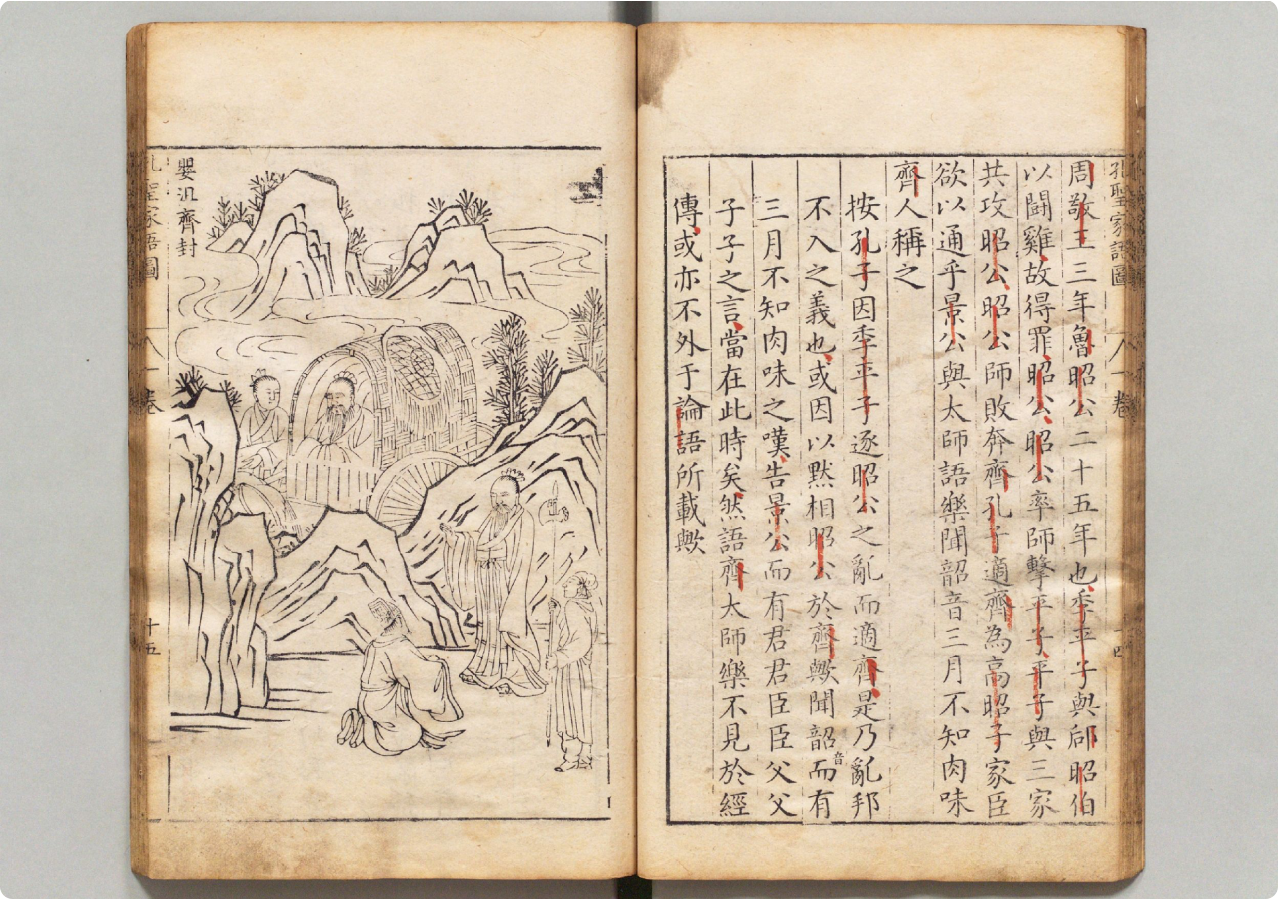 孔聖家語圖
八一卷
十四
周敬王三年魯昭公二十五年也季平子與郈昭伯
以鬪雞故得罪昭公昭公率師擊平子平子與三家
共攻昭公昭公師敗奔齊孔子適齊為高昭子家臣
欲以通乎景公與太師語樂聞韶音三月不知肉味
齊人稱之
按孔子因季平子逐昭公之亂而適齊是乃亂邦
不入之義也或因以黙相昭公於齊歟聞韶音而有
三月不知肉味之嘆告景公而有君君臣臣父父
子子之言當在此時矣然語齊太師樂不見於經
傳或亦不外于論語所載歟
晏沮齊封
孔聖家語圖
八一卷
十五